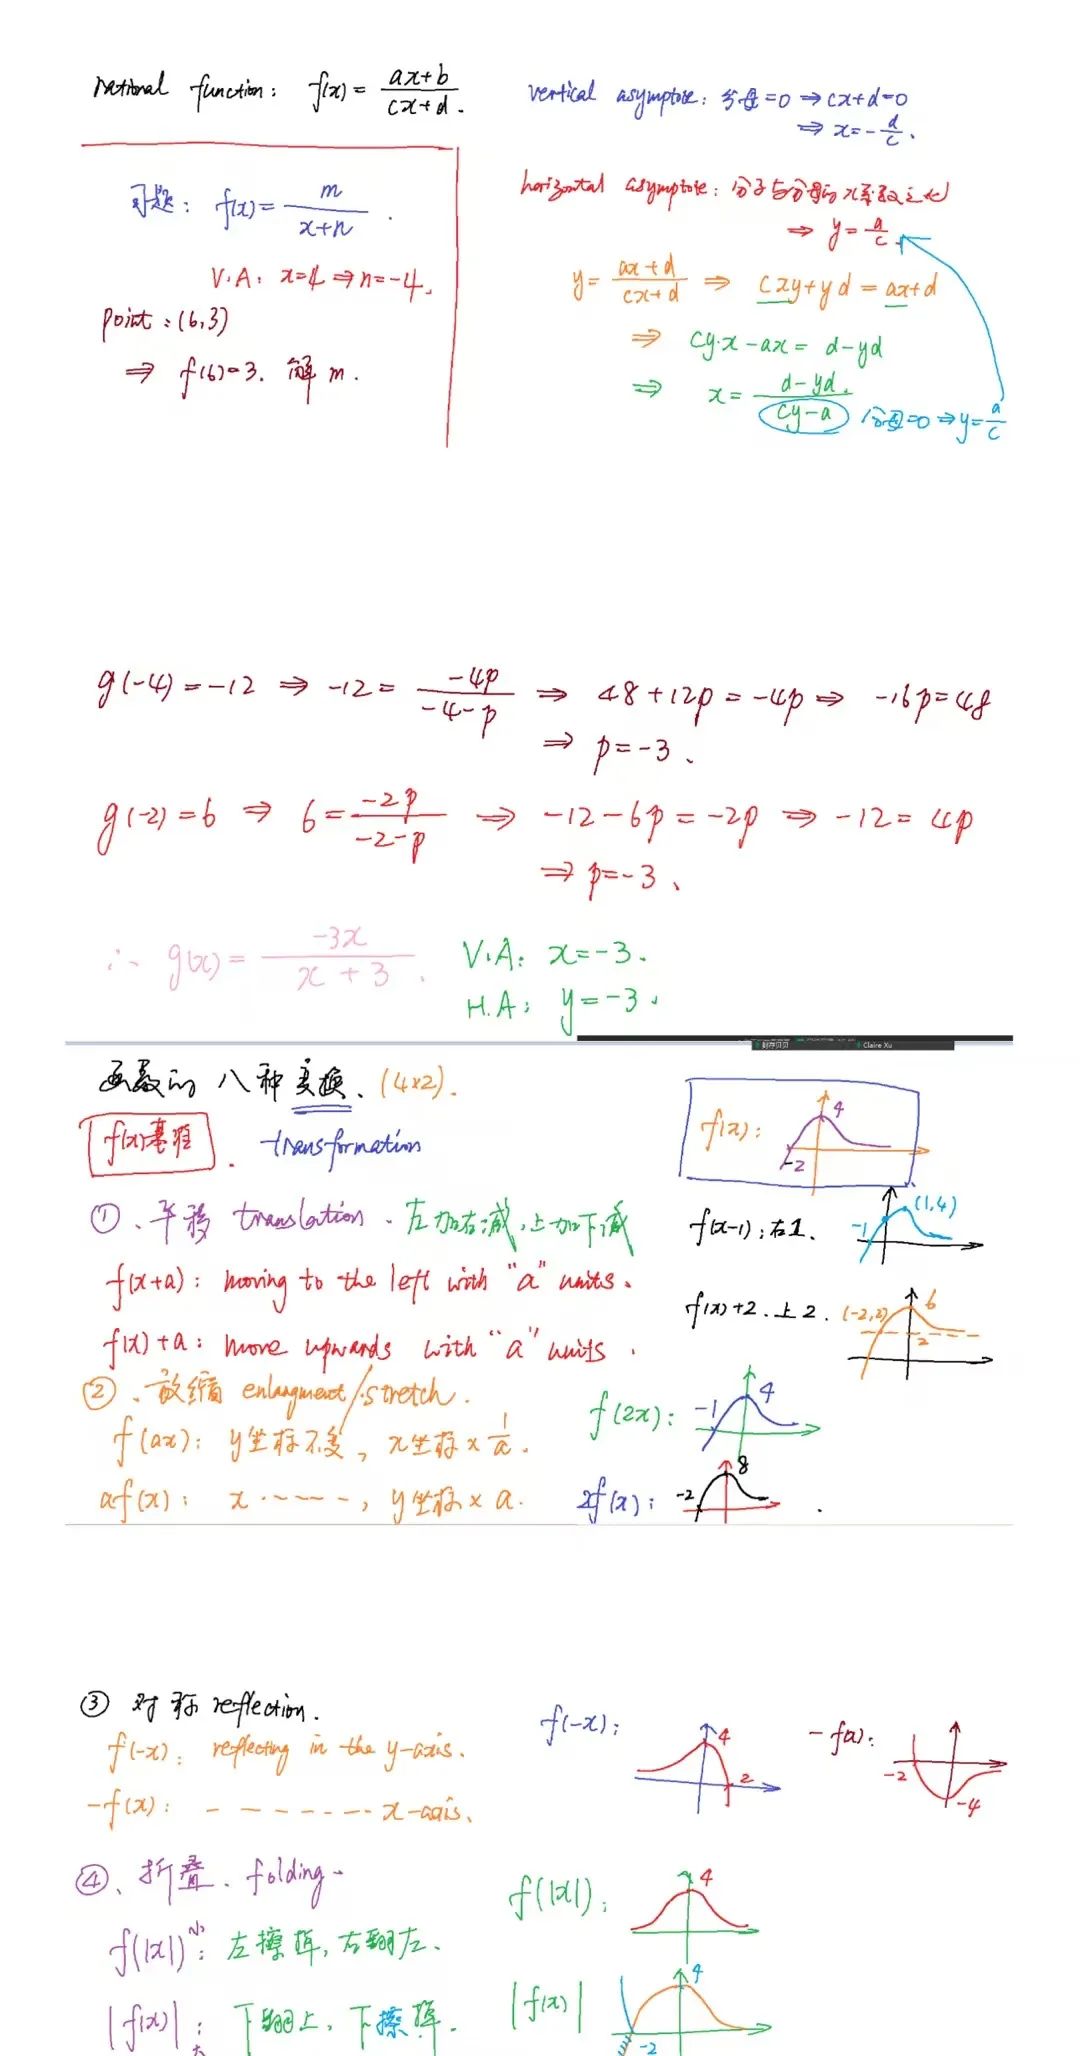 rational function: f(x) = (ax+b)/(cx+d).
vertical asymptote: 分母=0 ⇒ cx+d=0
⇒ x=-d/c.
习题: f(x) = m/(x+n).
V.A: x=4 ⇒ n=-4.
point: (6,3)
⇒ f(6)=3. 解 m.
horizontal asymptote: 分子与分母的x系数之比
⇒ y = a/c
y = (ax+d)/(cx+d) ⇒ cxy+yd = ax+d
⇒ cy·x-ax = d-yd
⇒ x = (d-yd)/(cy-a). 分母=0 ⇒ y=a/c
g(-4)=-12 ⇒ -12 = -4p/(-4-p) ⇒ 48+12p=-4p ⇒ -16p=48
⇒ p=-3.
g(-2)=6 ⇒ 6 = -2p/(-2-p) ⇒ -12-6p=-2p ⇒ -12=4p
⇒ p=-3.
∴ g(x) = -3x/(x+3). V.A: x=-3.
H.A: y=-3.
Claire Xu
函数的八种变换. (4×2).
f(x)基准. transformation
f(x): 4 -2
① 、平移 translation. 左加右减,上加下减
f(x+a): moving to the left with "a" units.
f(x)+a: move upwards with "a" units.
f(x-1): 右1. -1 (1,4)
f(x)+2. 上2. (-2,2) 6 2
② 、放缩 enlargment/stretch.
f(ax): y坐标不变, x坐标×1/a.
af(x): x-----, y坐标×a.
f(2x): -1 4
2f(x): -2 8
③ 对称 reflection.
f(-x): reflecting in the y-axis.
-f(x): -------- x-axis.
f(-x): 4 2
-f(x): -2 -4
④、折叠. folding.
f(|x|): 左擦掉,右翻左.
|f(x)|: 下翻上,下擦掉.
f(|x|): 4
|f(x)| 4 -2